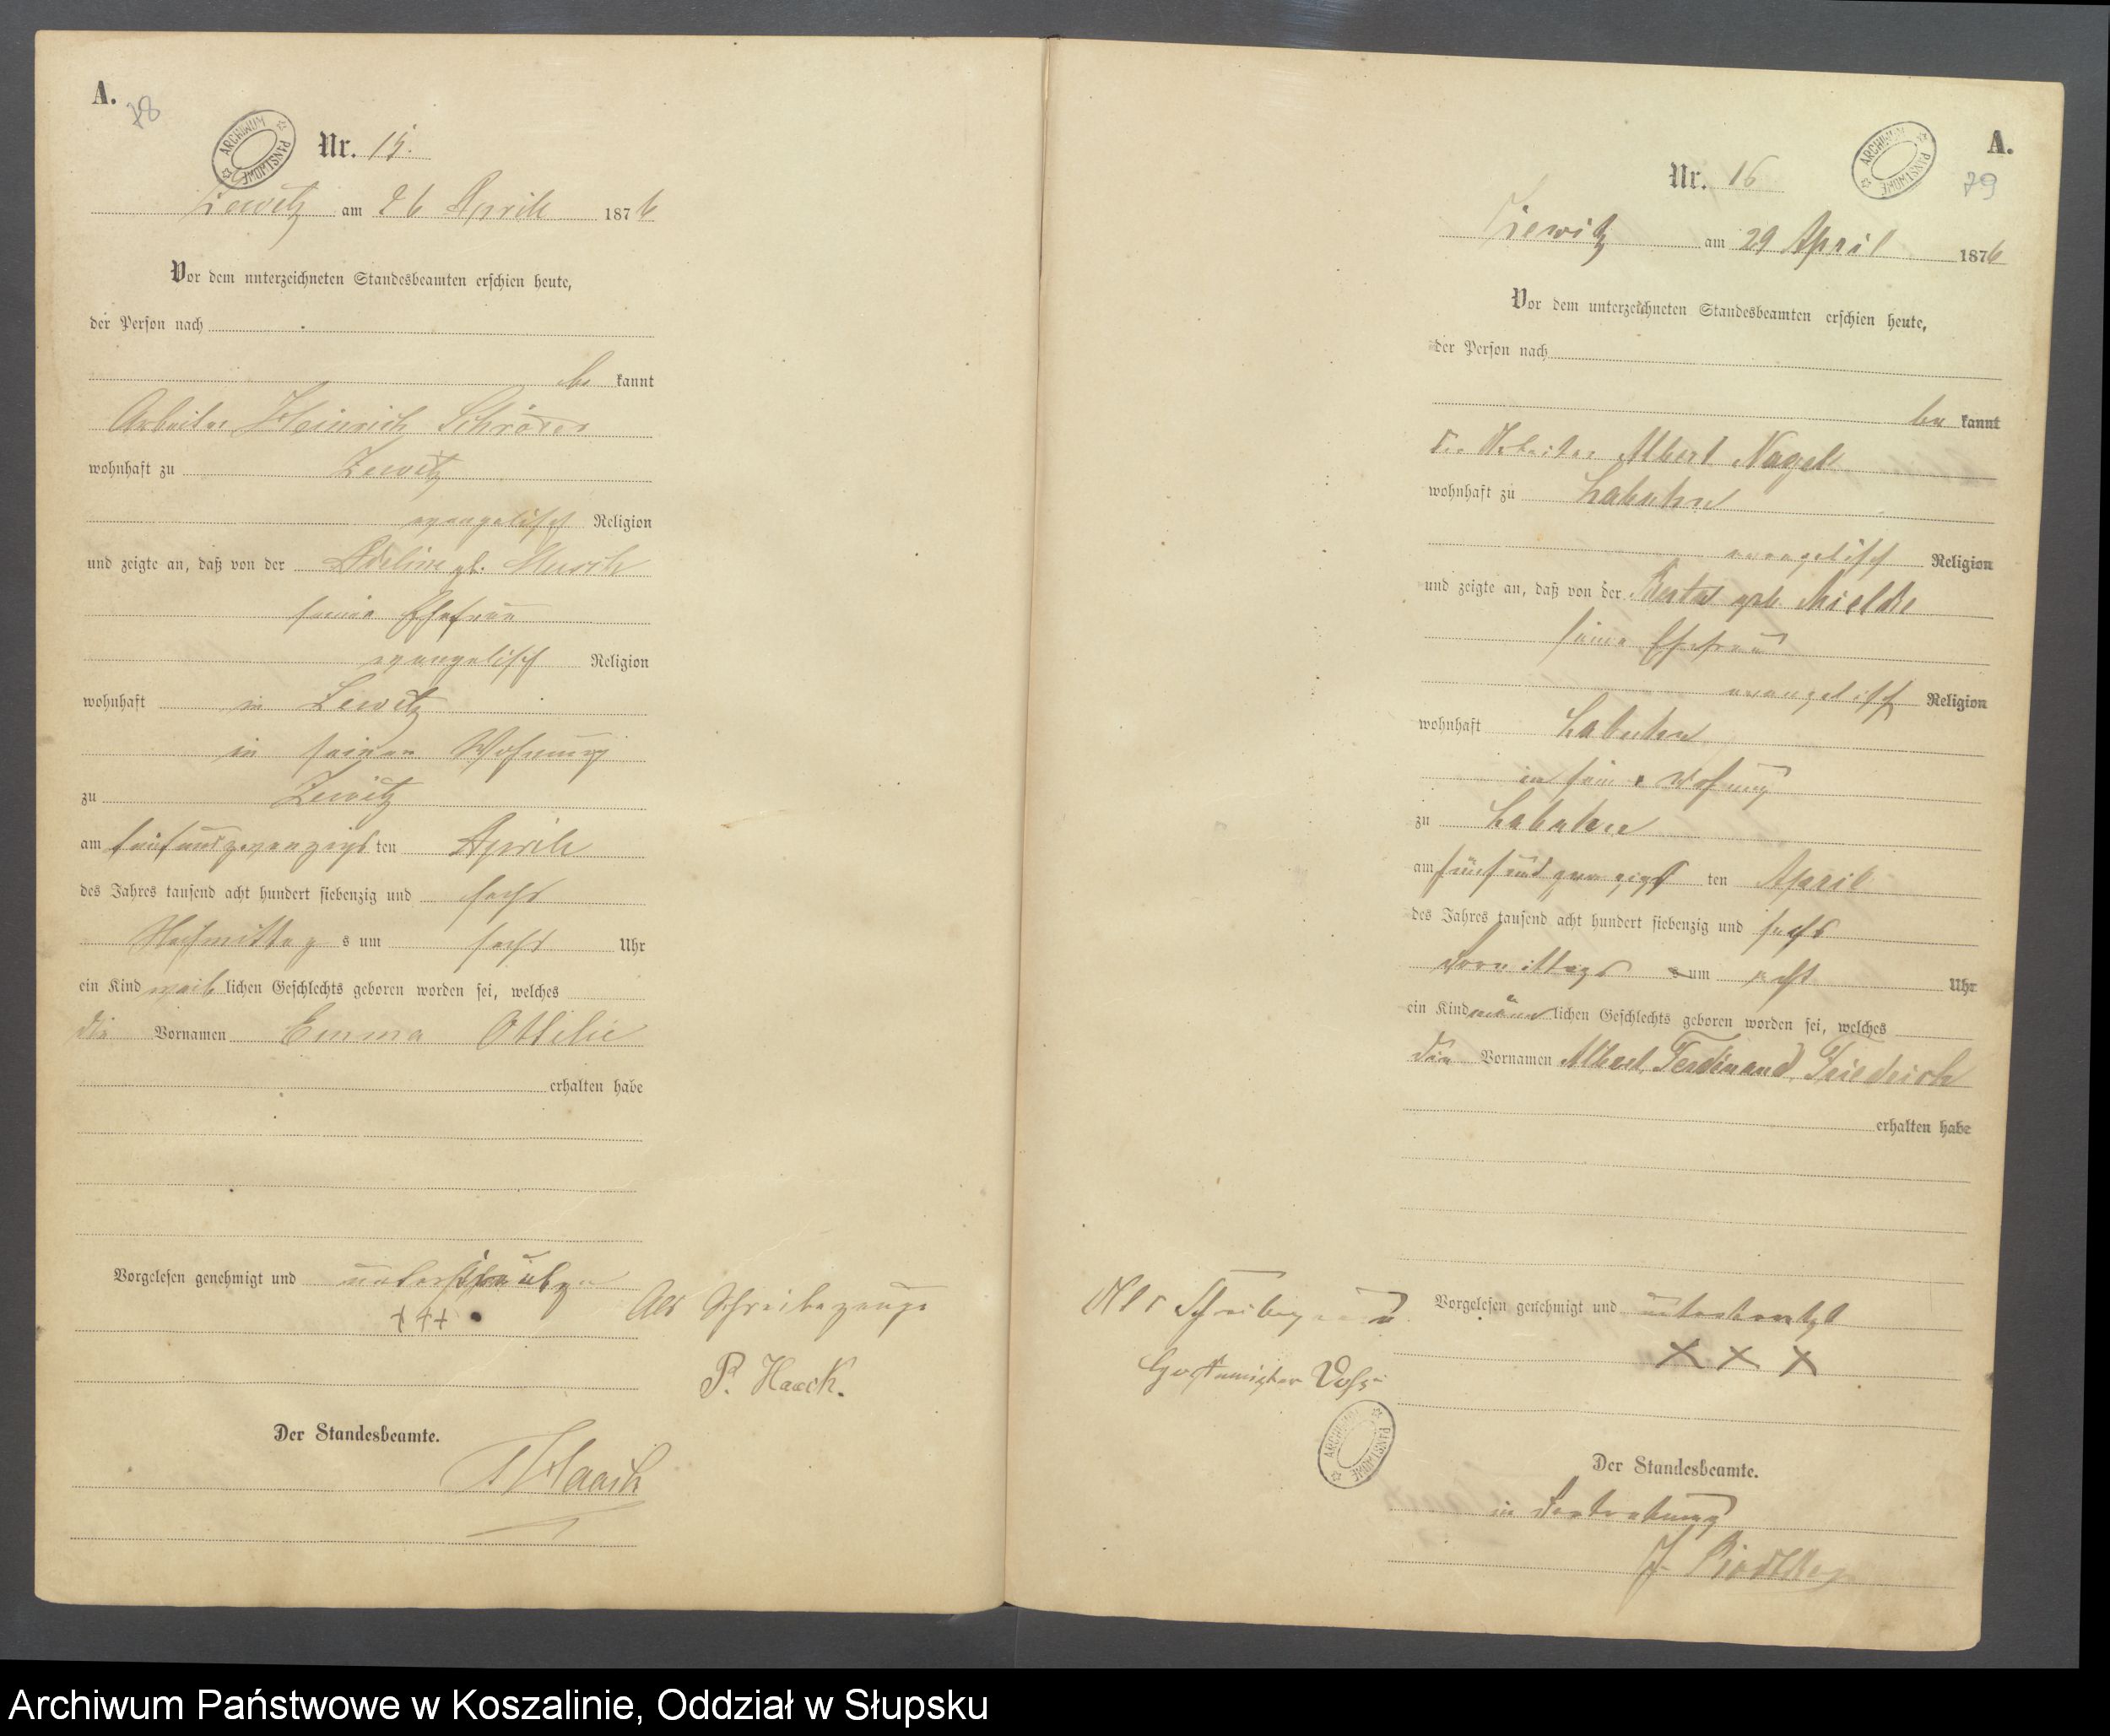 A.
78
ARCHIWUM PAŃSTWOWE
Nr. 15.
Zewitz am 26 Aprill 1876
Vor dem unterzeichneten Standesbeamten erschien heute,
der Person nach
be kannt
Arbeiter Heinrich Schröder
wohnhaft zu Zewitz
evangelisch Religion
und zeigte an, daß von der Adeline gb.
seine Ehefrau
evangelisch Religion
wohnhaft in Zewitz
in seiner Wohnung
zu Zewitz
am fünfundzwanzigs ten Aprill
des Jahres tausend acht hundert siebenzig und sechs
Nachmittag s um sechs Uhr
ein Kind weib lichen Geschlechts geboren worden sei, welches
die Vornamen Emma Ottilie
erhalten habe
Vorgelesen genehmigt und
+++
Als Schreibezeuge
P. Haack.
Der Standesbeamte.
Haack
A.
79
ARCHIWUM PAŃSTWOWE
Nr. 16
Ziewitz am 29 April 1876
Vor dem unterzeichneten Standesbeamten erschien heute,
der Person nach
be kannt
der Arbeiter Albert Nagel
wohnhaft zu Labuhn
evangelisch Religion
und zeigte an, daß von der Berta geb. Mielke
seine Ehefrau
evangelisch Religion
wohnhaft Labuhn
in seine Wohnung
zu Labuhn
am fünfundzwanzigs ten April
des Jahres tausend acht hundert siebenzig und sechs
Vormittags um acht Uhr
ein Kind männ lichen Geschlechts geboren worden sei, welches
die Vornamen Albert, Ferdinand, Friedrich
erhalten habe
Vorgelesen genehmigt und
X X X
Als
ARCHIWUM PAŃSTWOWE
Der Standesbeamte.
in Vertretung
Archiwum Państwowe w Koszalinie, Oddział w Słupsku